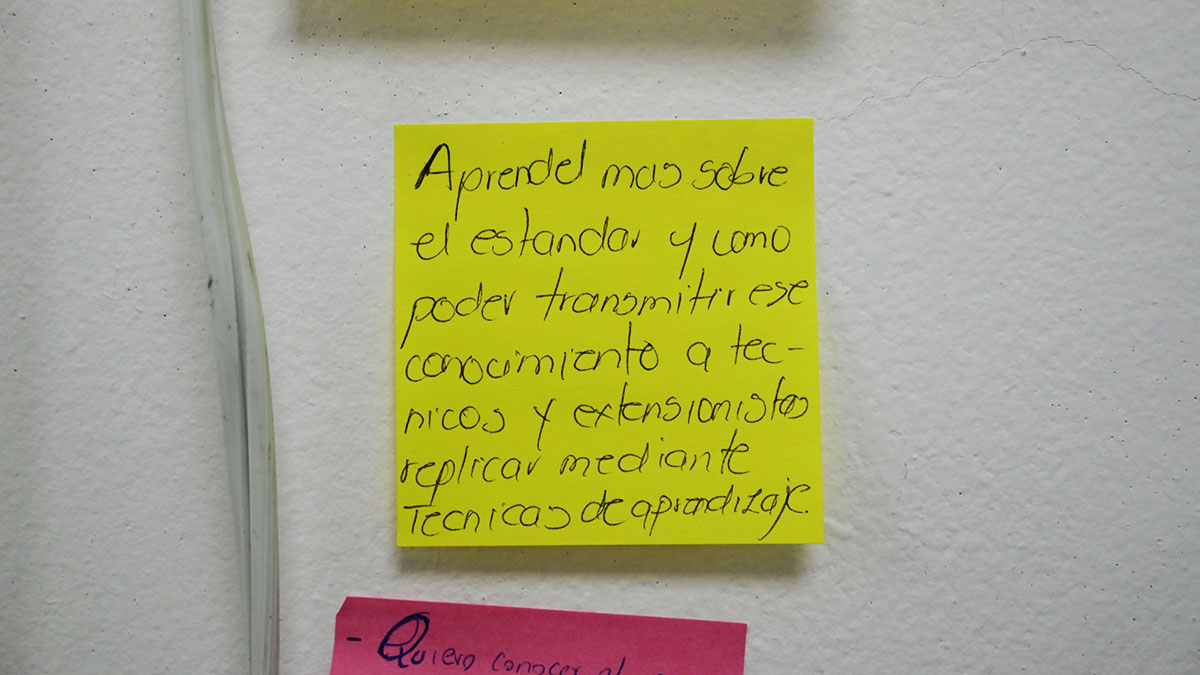 Aprendel mas sobre
el estandar y como
poder transmitir ese
conocimiento a tec-
nicos y extensionistas
replicar mediante
Tecnicas de aprendizaje.
- Quiero conocer el